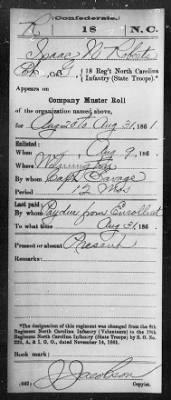 (Confederate.)
R 18 N.C.
Isaac W Roberts
Co. G, 18 Reg't North Carolina
Infantry (State Troops).
Appears on
Company Muster Roll
of the organization named above,
for Aug 31, 186 1.
Enlisted:
When Aug 9, 186
Where Wilmington
By whom Capt Savage
Period 12 Mos
Last paid:
By whom Pay due from Enrollmt
To what time Aug 31, 186
Present or absent Present
Remarks:
*The designation of this regiment was changed from the 8th
Regiment North Carolina Infantry (Volunteers) to the 18th
Regiment North Carolina Infantry (State Troops) by S. O. No.
A & I. G. O., dated November 14, 1861.
Book mark:
(642) J Jacobson
Copyist.